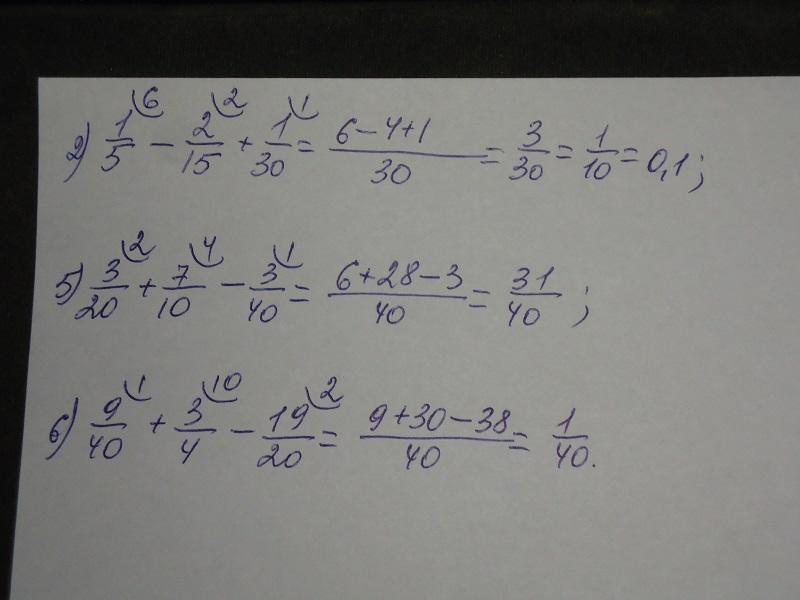 2) 1/5 ⁶ − 2/15 ² + 1/30 ¹ = (6−4+1)/30 = 3/30 = 1/10 = 0,1;
5) 3/20 ² + 7/10 ⁴ − 3/40 ¹ = (6+28−3)/40 = 31/40;
6) 9/40 ¹ + 3/4 ¹⁰ − 19/20 ² = (9+30−38)/40 = 1/40.